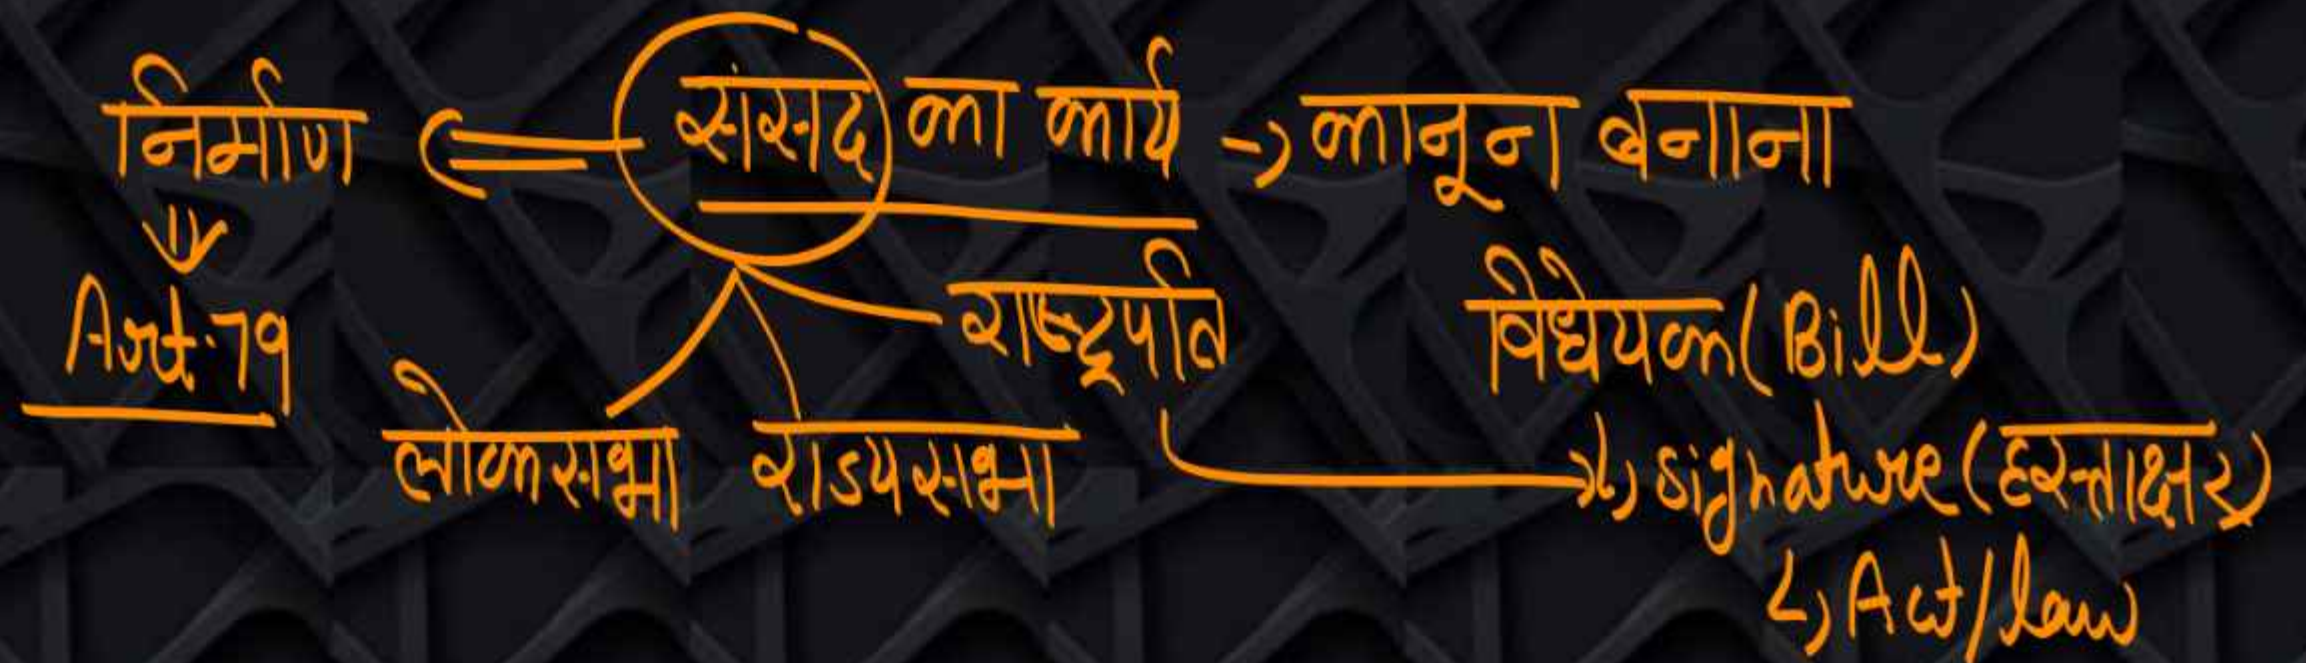 निर्माण संसद का कार्य → कानून बनाना
Art. 79
राष्ट्रपति
विधेयक (Bill)
लोकसभा राज्यसभा
signature (हस्ताक्षर)
Act/law